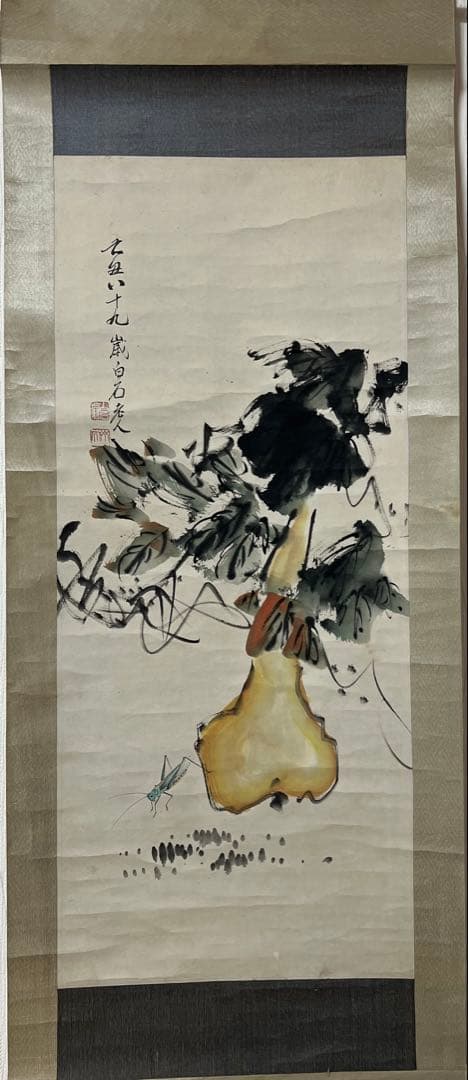 丑八十九歲白石老人